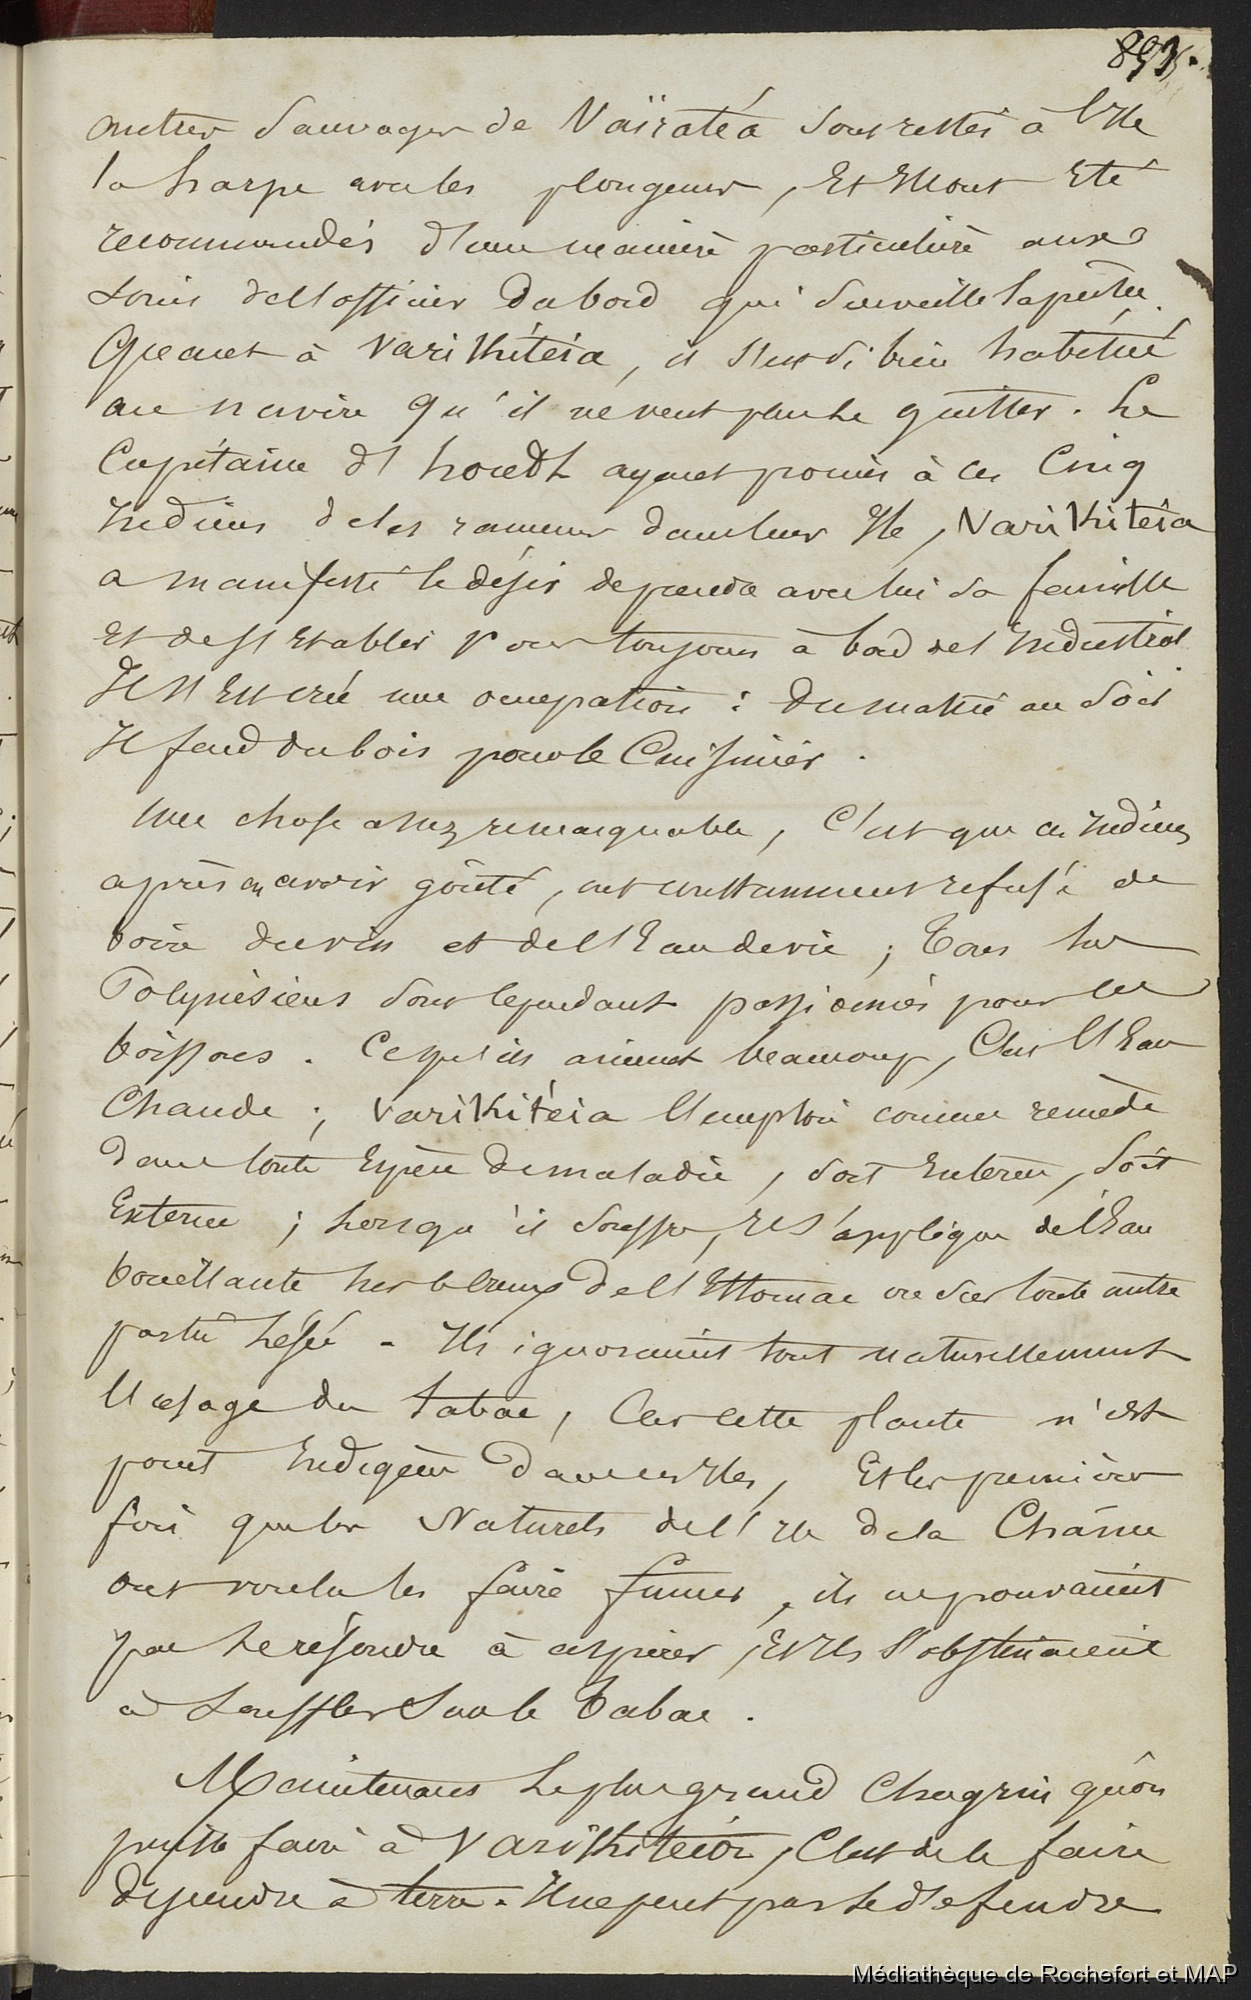 autres Sauvages de Vaïratéa sont restés à l'Ile
la harpe avec les plongeurs, Et Ils ont Eté
recommandés d'une manière particulière aux
soins de l'officier Du bord qui surveille la pêche.
Quant à Vari Kitéia, il s'est si bien habitué
au navire qu'il ne veut plus le quitter. Le
Capitaine d'hondt ayant promis à ces Cinq
Indiens de les ramener dans leur Ile, Vari Kitéia
a manifesté le désir de prendre avec lui sa famille
Et de s'Etablir pour toujours à bord de l'Industriel
Il s'Est créé une occupation : Du matin au soir
Il fend du bois pour le Cuisinier.
Une chose assez remarquable, C'est que ces Indiens
après en avoir goûté, ont constamment refusé de
boire du vin et de l'Eau de vie ; Tous les
Polynésiens sont cependant passionnés pour ces
boissons. Ce qu'ils aiment beaucoup, C'est l'Eau
Chaude ; Vari Kitéia l'emploie comme remède
dans toute Espèce de maladie, soit Interne, soit
Externe ; lorsqu'il souffre, Il s'applique de l'Eau
bouillante sur le creux de l'Estomac ou sur toute autre
partie lésée. Ils ignoraient tout naturellement
l'usage du tabac, Car cette plante n'est
point Indigène dans ces Iles, Et les premières
fois que les Naturels de l'Ile de la Chaine
ont voulu les faire fumer, ils ne pouvaient
pas se résoudre à aspirer, Et Ils s'obstinaient
à souffler sur le Tabac.
Maintenant le plus grand Chagrin qu'on
puisse faire à Vari Kitéia, C'est de le faire
descendre à terre. Il ne peut pas se défendre
Médiathèque de Rochefort et MAP